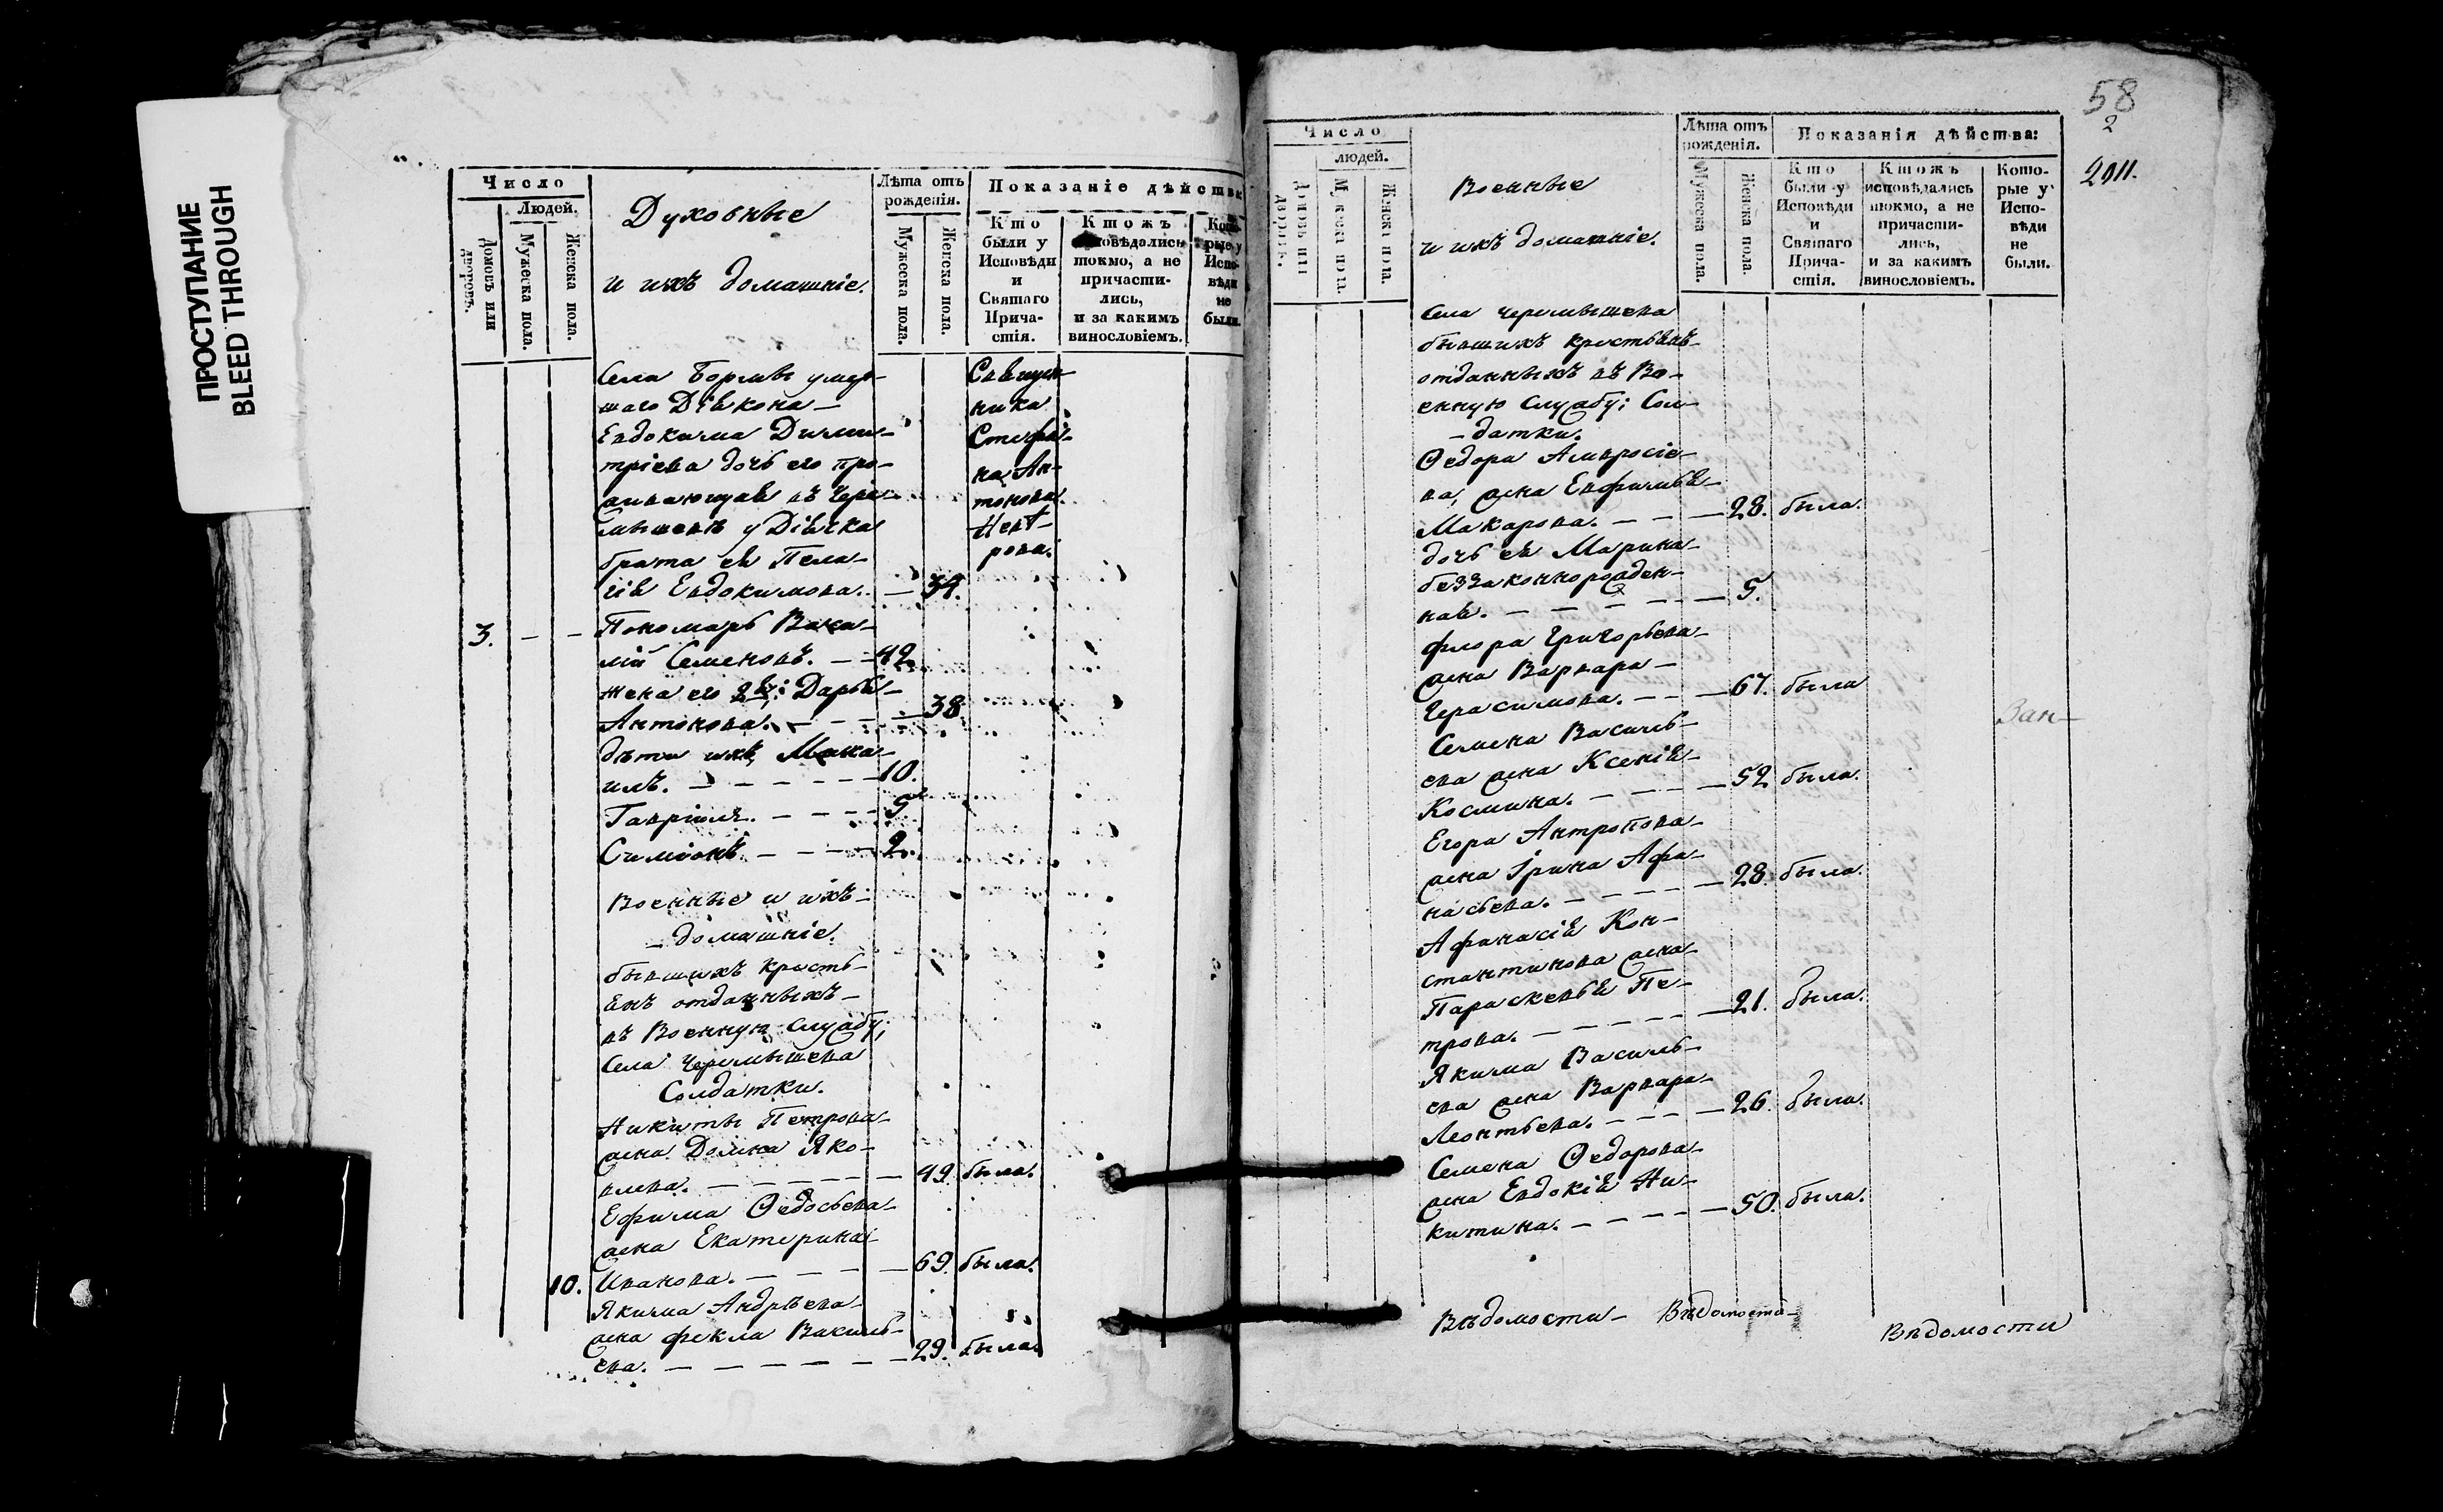 ПРОСТУПАНИЕ
BLEED THROUGH
Число
Людей.
Домовъ или дворовъ.
Мужеска пола.
Женска пола.
Духовные
и ихъ домашніе.
Лѣта отъ рожденія.
Мужеска пола.
Женска пола.
Показаніе дѣйства
Кто были у Исповѣди и Святаго Прича-стія.
Ктожъ исповѣдались токмо, а не причасти-лись, и за какимъ винословіемъ.
Кото-рые у Испо-вѣди не были.
Села Бормы умер-
шаго Діякона
Евдокима Дими-
тріева дочь его про-
живающая въ Чере-
мышевѣ у Дьячка
брата ея Пела-
гія Евдокимова. — 34.
Священ-
ника
Стефа-
на Ан-
тонова.
3. — — Пономарь Вака-
лій Семеновъ. — 42.
жена его 2я: Дарья
Антонова. — 38
дѣти ихъ, Миха-
илъ. — 10.
Гавріилъ. — 5
Симіонъ. — 2.
Военные и ихъ
домашніе.
бывшихъ кресть-
янъ отданныхъ
въ Военную службу;
Села Черемышева
Солдатки.
Никиты Петрова
жена Домна Яко-
влева. — 49. была.
Ефима Ѳедосьева
жена Екатерина
10. Иванова. — 69. была.
Якима Андрѣева
жена Фекла Василь-
ева. — 29. была.
58
2
2011.
Число
людей.
Домовъ или дворовъ.
Мужеска пола.
Женска пола.
Военные
и ихъ домашніе.
Лѣта отъ рожденія.
Мужеска пола.
Женска пола.
Показанія дѣйства:
Кто были у Исповѣди и Святаго Прича-стія.
Ктожъ исповѣдались токмо, а не причасти-лись, и за какимъ винословіемъ.
Кото-рые у Испо-вѣди не были.
Села Черемышева
бывшихъ крестьянъ
отданныхъ въ Во-
енную службу; Сол-
датки.
Ѳедора Амвросіе-
ва, жена Евфимья
Макарова. — 28. была.
дочь ея Марина
беззаконнорожден-
ная. — 5.
Флора Григорьева
жена Варвара
Герасимова. — 67. была
Семена Василь-
ева жена Ксенія
Космина. — 52 была.
Егора Антропова
жена Ірина Афа-
насьева. — 28. была.
Афанасія Кон-
стантинова жена
Параскевья Пе-
трова. — 21. была.
Якима Василь-
ева жена Варвара
Леонтьева. — 26. была.
Семена Ѳедорова
жена Евдокія Ни-
китина. — 50. была.
Ван
Вѣдомости Вѣдомости Вѣдомости